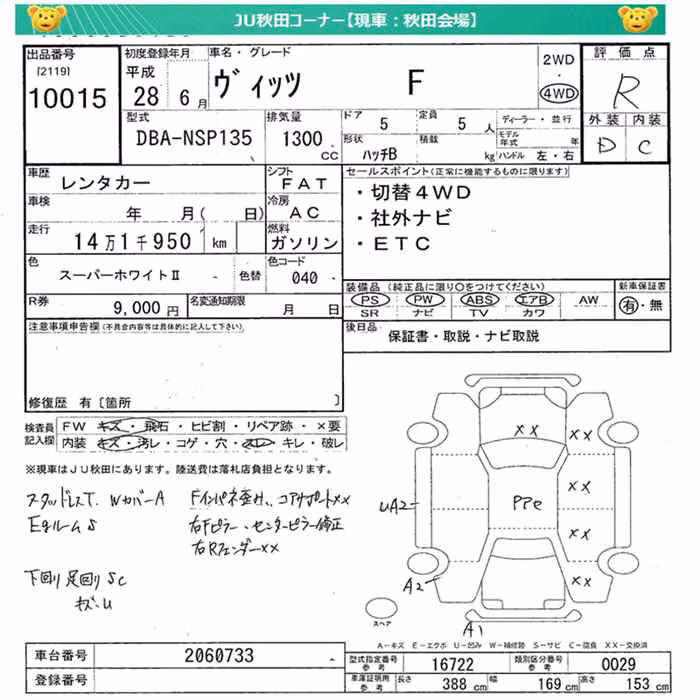 JU秋田コーナー【現車：秋田会場】
出品番号 [2119] 10015
初度登録年月 平成 28 6月
車名・グレード ヴィッツ F
2WD 4WD
評価点 R
外装 D 内装 C
型式 DBA-NSP135
排気量 1300 CC
ドア 5 定員 5 人
形状 ハッチB 積載 kg
ディーラー・並行
モデル年式 年
ハンドル 左・右
車歴 レンタカー
シフト FAT
車検 年 月( 日)
冷房 AC
走行 14万1千950 km
燃料 ガソリン
色 スーパーホワイトⅡ 色替
色コード 040
R券 9,000円
名変通知期限 月 日
セールスポイント(正常に機能するものに限ります)
・切替4WD
・社外ナビ
・ETC
装備品 (純正品に限り○をつけてください)
PS PW ABS エアB AW
SR ナビ TV カワ
新車保証書 有・無
後日品 保証書・取説・ナビ取説
注意事項申告欄(不具合内容等は具体的に記入して下さい)
修復歴 有[箇所 ]
検査員記入欄
FW キズ・飛石・ヒビ割・リペア跡・×要
内装 キズ・汚レ・コゲ・穴・スレ・キレ・破レ
※現車はJU秋田にあります。陸送費は落札店負担となります。
スタッドレスT. WカバーA
EgルームS
下回り足回りSC
キズ-U
Fインパネ歪み、コアサポートXX
右Fピラー、センターピラー修正
右RフェンダーXX
XX XX
XX
UA2 PPe
XX
A2 XX
スペア
A1
A-キズ E-エクボ U-凹み W-補修跡 S-サビ C-腐食 XX-交換済
車台番号 2060733
登録番号
型式指定番号 参考 16722
類別区分番号 参考 0029
車庫証明用 参考 長さ 388 cm 幅 169 cm 高さ 153 cm